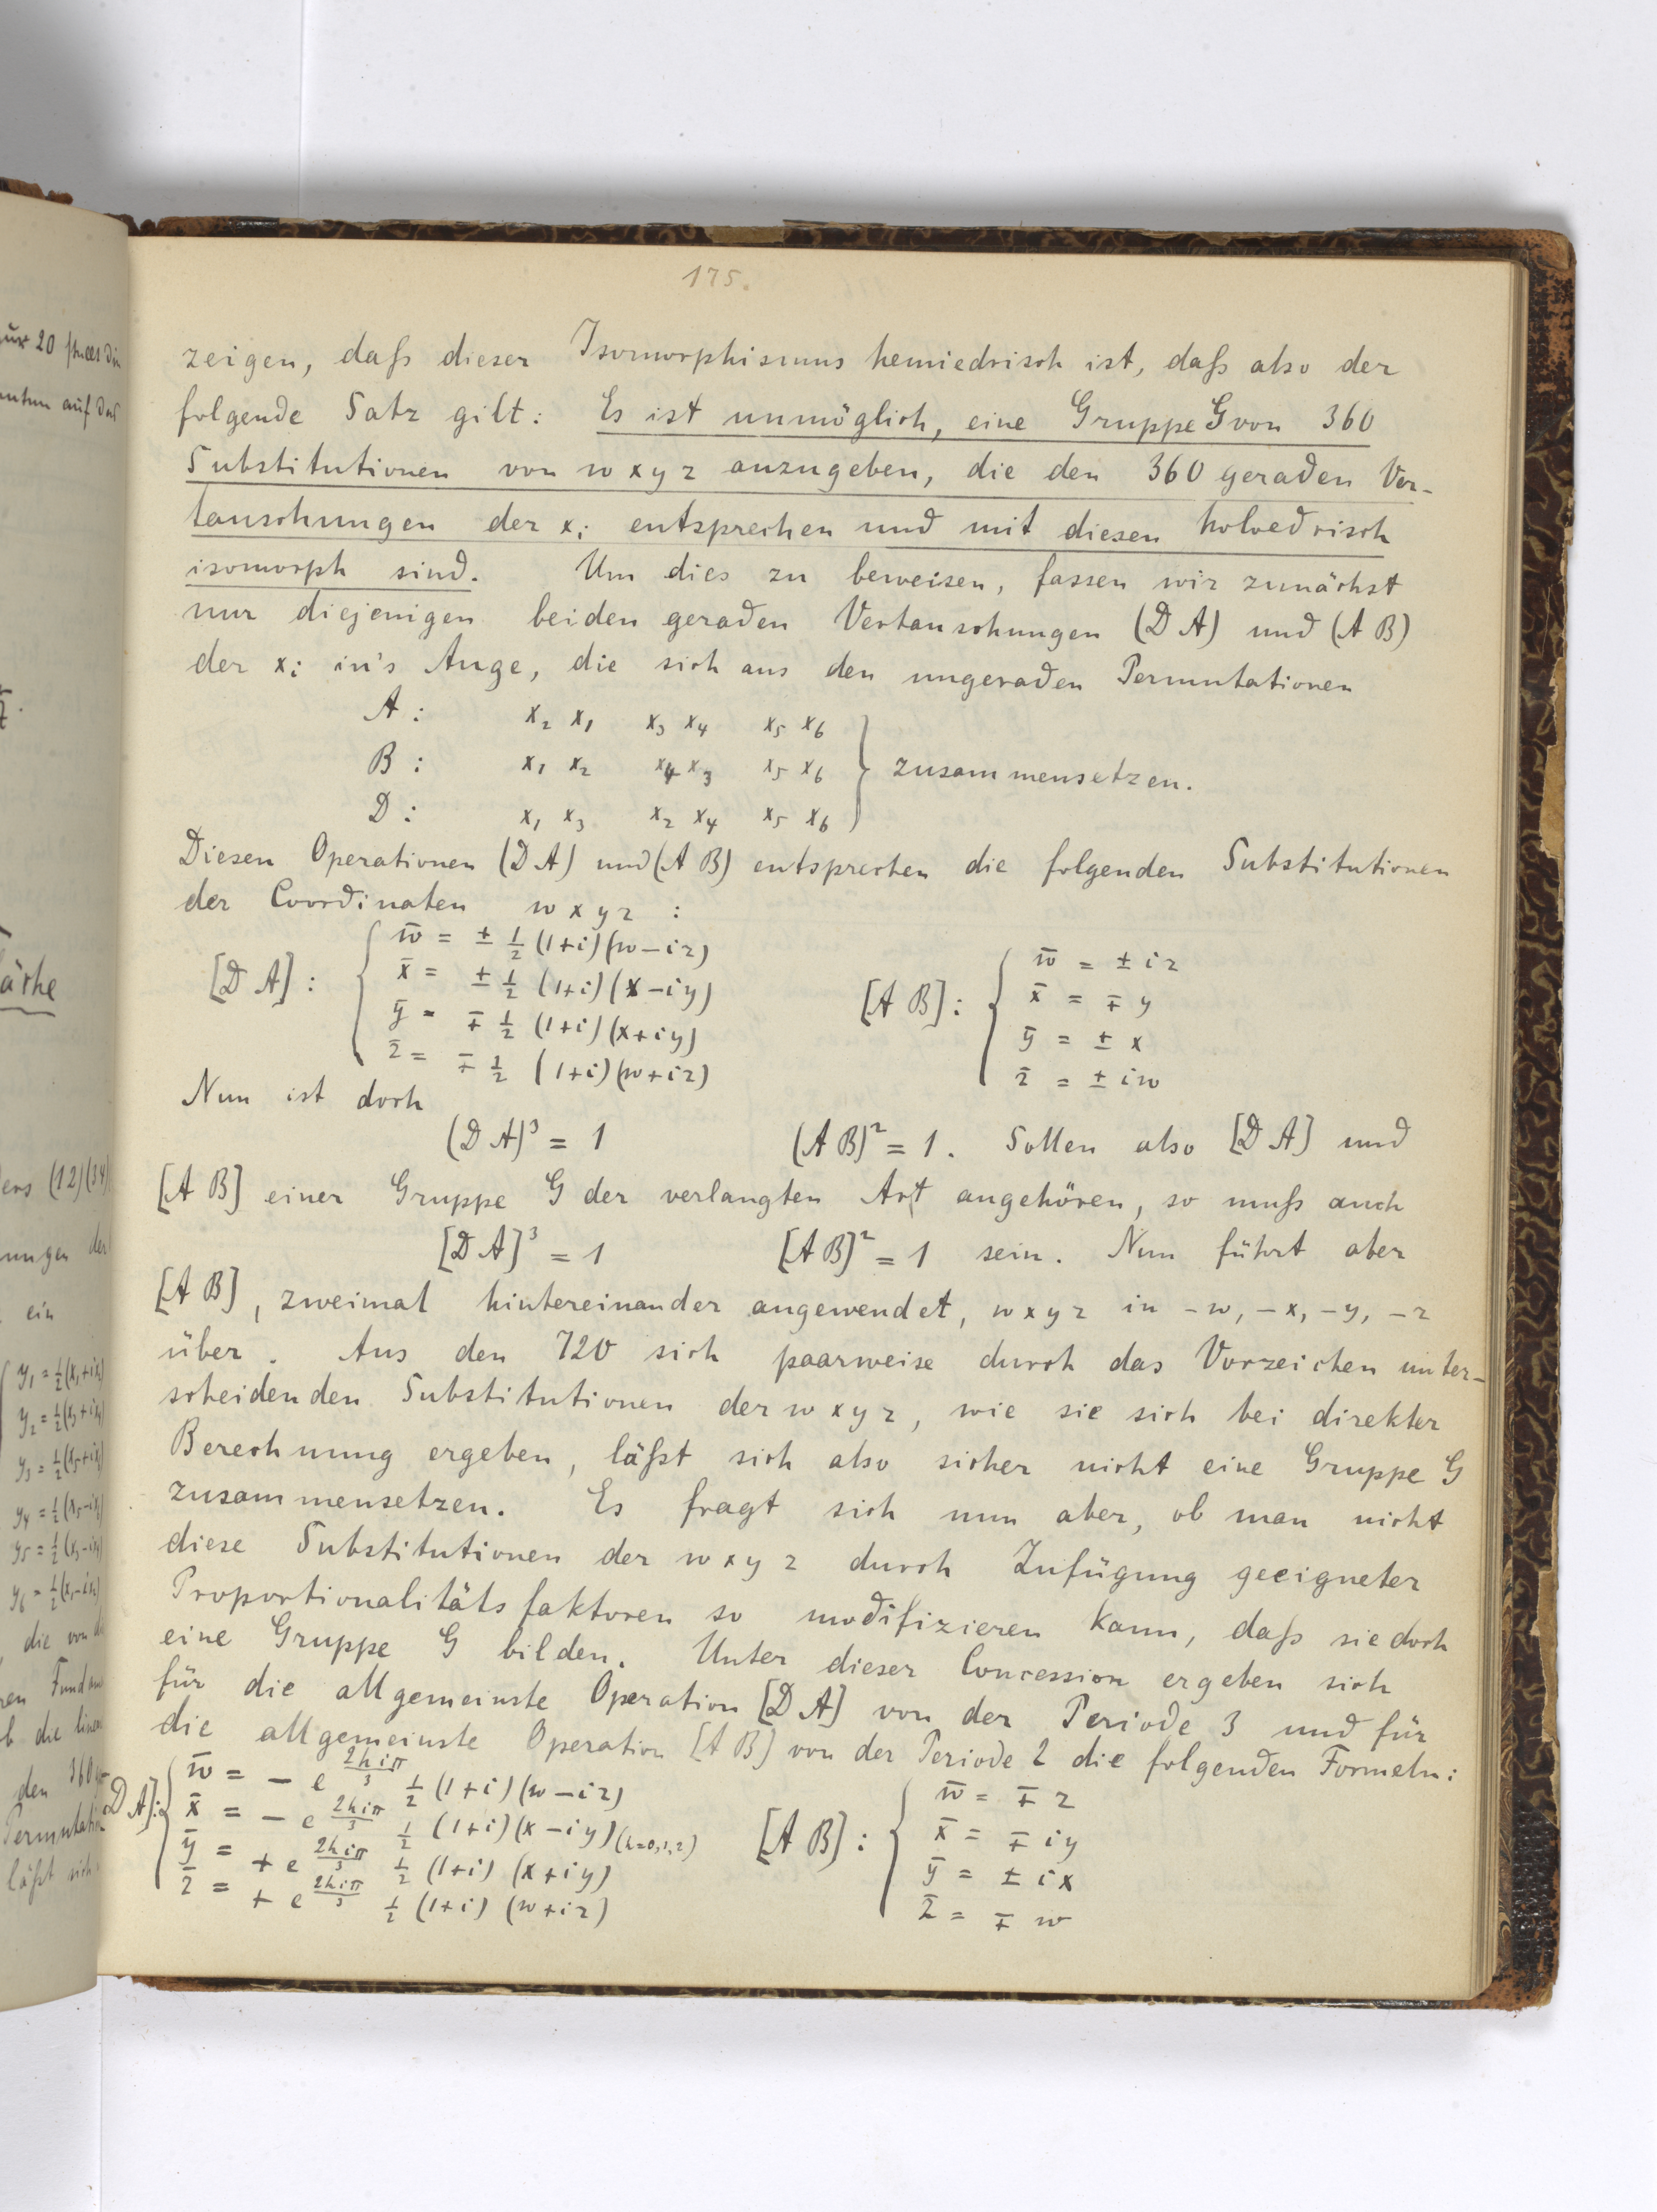 175.
zeigen, daſs dieser Isomorphismus hemiedrisch ist, daſs also der
folgende Satz gilt: Es ist unmöglich, eine Gruppe G von 360
Substitutionen von w x y z anzugeben, die den 360 geraden Ver-
tauschungen der xᵢ entsprechen und mit diesen holoedrisch
isomorph sind. Um dies zu beweisen, fassen wir zunächst
nur diejenigen beiden geraden Vertauschungen (D A) und (A B)
der xᵢ in's Auge, die sich aus den ungeraden Permutationen
A : x₂ x₁ x₃ x₄ x₅ x₆
B : x₁ x₂ x₄ x₃ x₅ x₆ } zusammensetzen.
D : x₁ x₃ x₂ x₄ x₅ x₆
Diesen Operationen (D A) und (A B) entsprechen die folgenden Substitutionen
der Coordinaten w x y z :
[D A] : { w̄ = ± ½ (1+i)(w-iz)
x̄ = ± ½ (1+i)(x-iy)
ȳ = ∓ ½ (1+i)(x+iy)
z̄ = ∓ ½ (1+i)(w+iz)
[A B] : { w̄ = ± iz
x̄ = ∓ y
ȳ = ± x
z̄ = ± iw
Nun ist doch
(D A)³ = 1 (A B)² = 1. Sollen also [D A] und
[A B] einer Gruppe G der verlangten Art angehören, so muſs auch
[D A]³ = 1 [A B]² = 1 sein. Nun führt aber
[A B], zweimal hintereinander angewendet, w x y z in -w, -x, -y, -z
über. Aus den 720 sich paarweise durch das Vorzeichen unter-
scheidenden Substitutionen der w x y z, wie sie sich bei direkter
Berechnung ergeben, läſst sich also sicher nicht eine Gruppe G
zusammensetzen. Es fragt sich nun aber, ob man nicht
diese Substitutionen der w x y z durch Zufügung geeigneter
Proportionalitätsfaktoren so modifizieren kann, daſs sie doch
eine Gruppe G bilden. Unter dieser Concession ergeben sich
für die allgemeinste Operation [D A] von der Periode 3 und für
die allgemeinste Operation [A B] von der Periode 2 die folgenden Formeln:
D A] : { w̄ = - e^{2hiπ/3} ½ (1+i)(w-iz)
x̄ = - e^{2hiπ/3} ½ (1+i)(x-iy) (h=0,1,2)
ȳ = + e^{2hiπ/3} ½ (1+i)(x+iy)
z̄ = + e^{2hiπ/3} ½ (1+i)(w+iz)
[A B] : { w̄ = ∓ z
x̄ = ∓ iy
ȳ = ± ix
z̄ = ∓ w